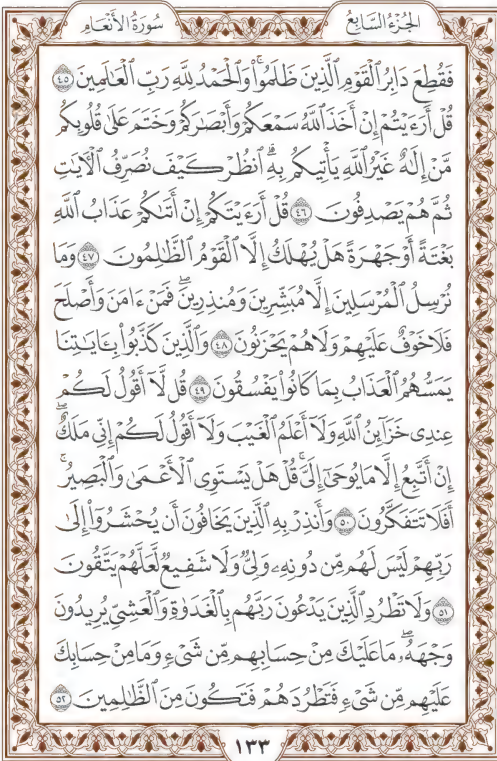 الجُزْءُ السَّابِعُ
سُورَةُ الأَنْعَامِ
فَقُطِعَ دَابِرُ ٱلْقَوْمِ ٱلَّذِينَ ظَلَمُوا۟ۚ وَٱلْحَمْدُ لِلَّهِ رَبِّ ٱلْعَـٰلَمِينَ ٤٥
قُلْ أَرَءَيْتُمْ إِنْ أَخَذَ ٱللَّهُ سَمْعَكُمْ وَأَبْصَـٰرَكُمْ وَخَتَمَ عَلَىٰ قُلُوبِكُم
مَّنْ إِلَـٰهٌ غَيْرُ ٱللَّهِ يَأْتِيكُم بِهِۗ ٱنظُرْ كَيْفَ نُصَرِّفُ ٱلْـَٔايَـٰتِ
ثُمَّ هُمْ يَصْدِفُونَ ٤٦ قُلْ أَرَءَيْتَكُمْ إِنْ أَتَىٰكُمْ عَذَابُ ٱللَّهِ
بَغْتَةً أَوْ جَهْرَةً هَلْ يُهْلَكُ إِلَّا ٱلْقَوْمُ ٱلظَّـٰلِمُونَ ٤٧ وَمَا
نُرْسِلُ ٱلْمُرْسَلِينَ إِلَّا مُبَشِّرِينَ وَمُنذِرِينَۖ فَمَنْ ءَامَنَ وَأَصْلَحَ
فَلَا خَوْفٌ عَلَيْهِمْ وَلَا هُمْ يَحْزَنُونَ ٤٨ وَٱلَّذِينَ كَذَّبُوا۟ بِـَٔايَـٰتِنَا
يَمَسُّهُمُ ٱلْعَذَابُ بِمَا كَانُوا۟ يَفْسُقُونَ ٤٩ قُل لَّآ أَقُولُ لَكُمْ
عِندِى خَزَآئِنُ ٱللَّهِ وَلَآ أَعْلَمُ ٱلْغَيْبَ وَلَآ أَقُولُ لَكُمْ إِنِّى مَلَكٌۖ
إِنْ أَتَّبِعُ إِلَّا مَا يُوحَىٰٓ إِلَىَّۚ قُلْ هَلْ يَسْتَوِى ٱلْأَعْمَىٰ وَٱلْبَصِيرُۚ
أَفَلَا تَتَفَكَّرُونَ ٥٠ وَأَنذِرْ بِهِ ٱلَّذِينَ يَخَافُونَ أَن يُحْشَرُوٓا۟ إِلَىٰ
رَبِّهِمْ لَيْسَ لَهُم مِّن دُونِهِۦ وَلِىٌّ وَلَا شَفِيعٌ لَّعَلَّهُمْ يَتَّقُونَ
٥١ وَلَا تَطْرُدِ ٱلَّذِينَ يَدْعُونَ رَبَّهُم بِٱلْغَدَوٰةِ وَٱلْعَشِىِّ يُرِيدُونَ
وَجْهَهُۥۖ مَا عَلَيْكَ مِنْ حِسَابِهِم مِّن شَىْءٍ وَمَا مِنْ حِسَابِكَ
عَلَيْهِم مِّن شَىْءٍ فَتَطْرُدَهُمْ فَتَكُونَ مِنَ ٱلظَّـٰلِمِينَ ٥٢
١٣٣